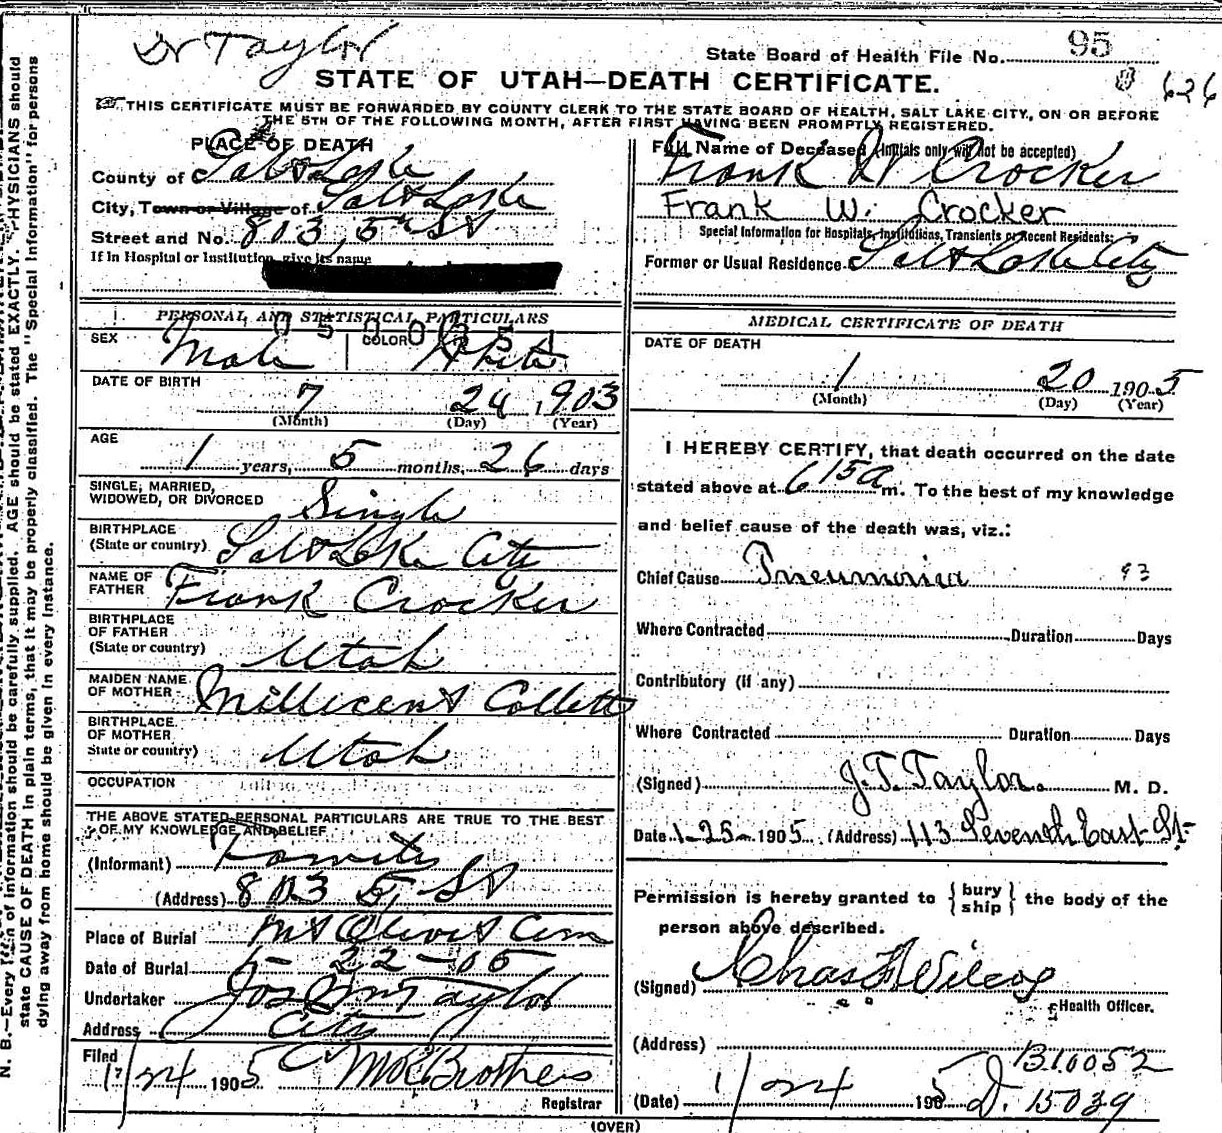 Dr Taylor
State Board of Health File No. 95
STATE OF UTAH—DEATH CERTIFICATE.
626
THIS CERTIFICATE MUST BE FORWARDED BY COUNTY CLERK TO THE STATE BOARD OF HEALTH, SALT LAKE CITY, ON OR BEFORE
THE 5TH OF THE FOLLOWING MONTH, AFTER FIRST HAVING BEEN PROMPTLY REGISTERED.
PLACE OF DEATH
County of Salt Lake
City, Town or Village of Salt Lake
Street and No. 803, 5th St
If in Hospital or Institution, give its name
Full Name of Deceased (Initials only will not be accepted)
Frank W Crocker
Frank W. Crocker
Special Information for Hospitals, Institutions, Transients or Recent Residents:
Former or Usual Residence Salt Lake City
PERSONAL AND STATISTICAL PARTICULARS
SEX Male COLOR White
DATE OF BIRTH
7 24 1903
(Month) (Day) (Year)
AGE
1 years, 5 months, 26 days
SINGLE, MARRIED,
WIDOWED, OR DIVORCED Single
BIRTHPLACE
(State or country) Salt Lake City
NAME OF
FATHER Frank Crocker
BIRTHPLACE
OF FATHER
(State or country) Utah
MAIDEN NAME
OF MOTHER Millicent Collett
BIRTHPLACE
OF MOTHER
State or country) Utah
OCCUPATION
THE ABOVE STATED PERSONAL PARTICULARS ARE TRUE TO THE BEST
OF MY KNOWLEDGE AND BELIEF
(Informant) Family
(Address) 803 5, St
Place of Burial Mt Olivet Cem
Date of Burial 1-22-05
Undertaker Jos Wm Taylor
Address City
Filed
1/24 1905
Registrar
MEDICAL CERTIFICATE OF DEATH
DATE OF DEATH
1 20 1905
(Month) (Day) (Year)
I HEREBY CERTIFY, that death occurred on the date
stated above at 615 a m. To the best of my knowledge
and belief cause of the death was, viz.:
Chief Cause Pneumonia 93
Where Contracted Duration Days
Contributory (if any)
Where Contracted Duration Days
(Signed) J.T. Taylor. M. D.
Date 1-25-1905 (Address) 113 Seventh East St-
Permission is hereby granted to {bury ship} the body of the
person above described.
(Signed) Chas F Wilcox
Health Officer.
(Address) B10052
(Date) 1/24 1905 D. 15039
(OVER)
N. B.—Every item of information should be carefully supplied. AGE should be stated EXACTLY. PHYSICIANS should
state CAUSE OF DEATH in plain terms, that it may be properly classified. The "Special Information" for persons
dying away from home should be given in every instance.